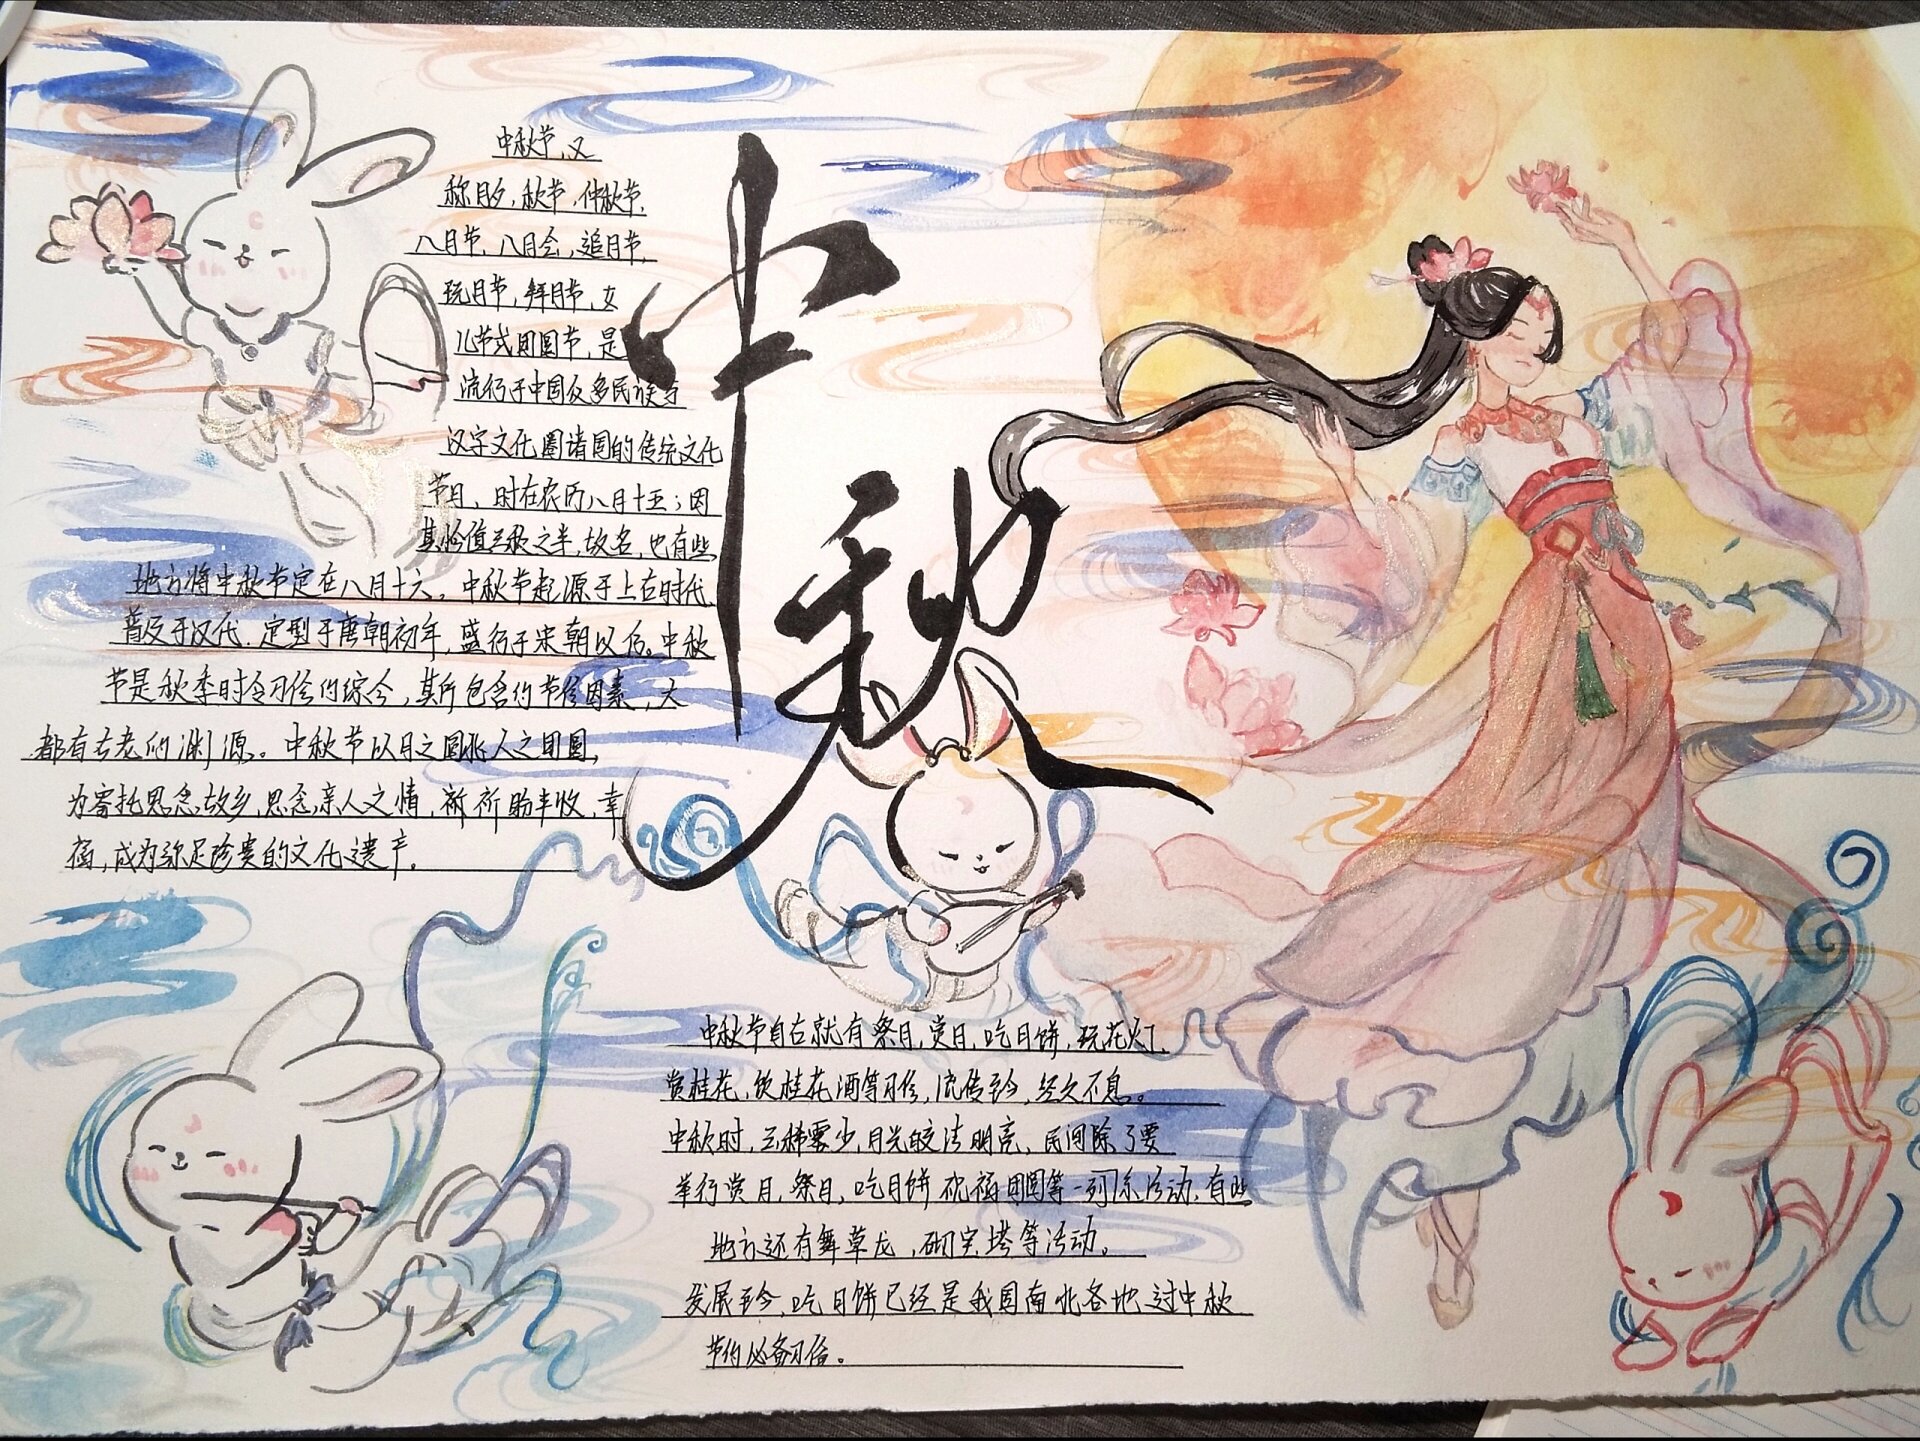 中秋
中秋节,又
称月夕,秋节,仲秋节,
八月节,八月会,追月节,
玩月节,拜月节,女
儿节或团圆节,是
流行于中国众多民族与
汉字文化圈诸国的传统文化
节日,时在农历八月十五;因
其恰值三秋之半,故名,也有些
地方将中秋节定在八月十六。中秋节起源于上古时代,
普及于汉代,定型于唐朝初年,盛行于宋朝以后。中秋
节是秋季时令习俗的综合,其所包含的节俗因素,大
都有古老的渊源。中秋节以月之圆兆人之团圆,
为寄托思念故乡,思念亲人之情,祈祈盼丰收、幸
福,成为弥足珍贵的文化遗产。
中秋节自古就有祭月,赏月,吃月饼,玩花灯,
赏桂花,饮桂花酒等习俗,流传至今,经久不息。
中秋时,云稀雾少,月光皎洁明亮,民间除了要
举行赏月,祭月,吃月饼祝福团圆等一列系活动,有些
地方还有舞草龙,砌宝塔等活动。
发展至今,吃月饼已经是我国南北各地过中秋
节的必备习俗。